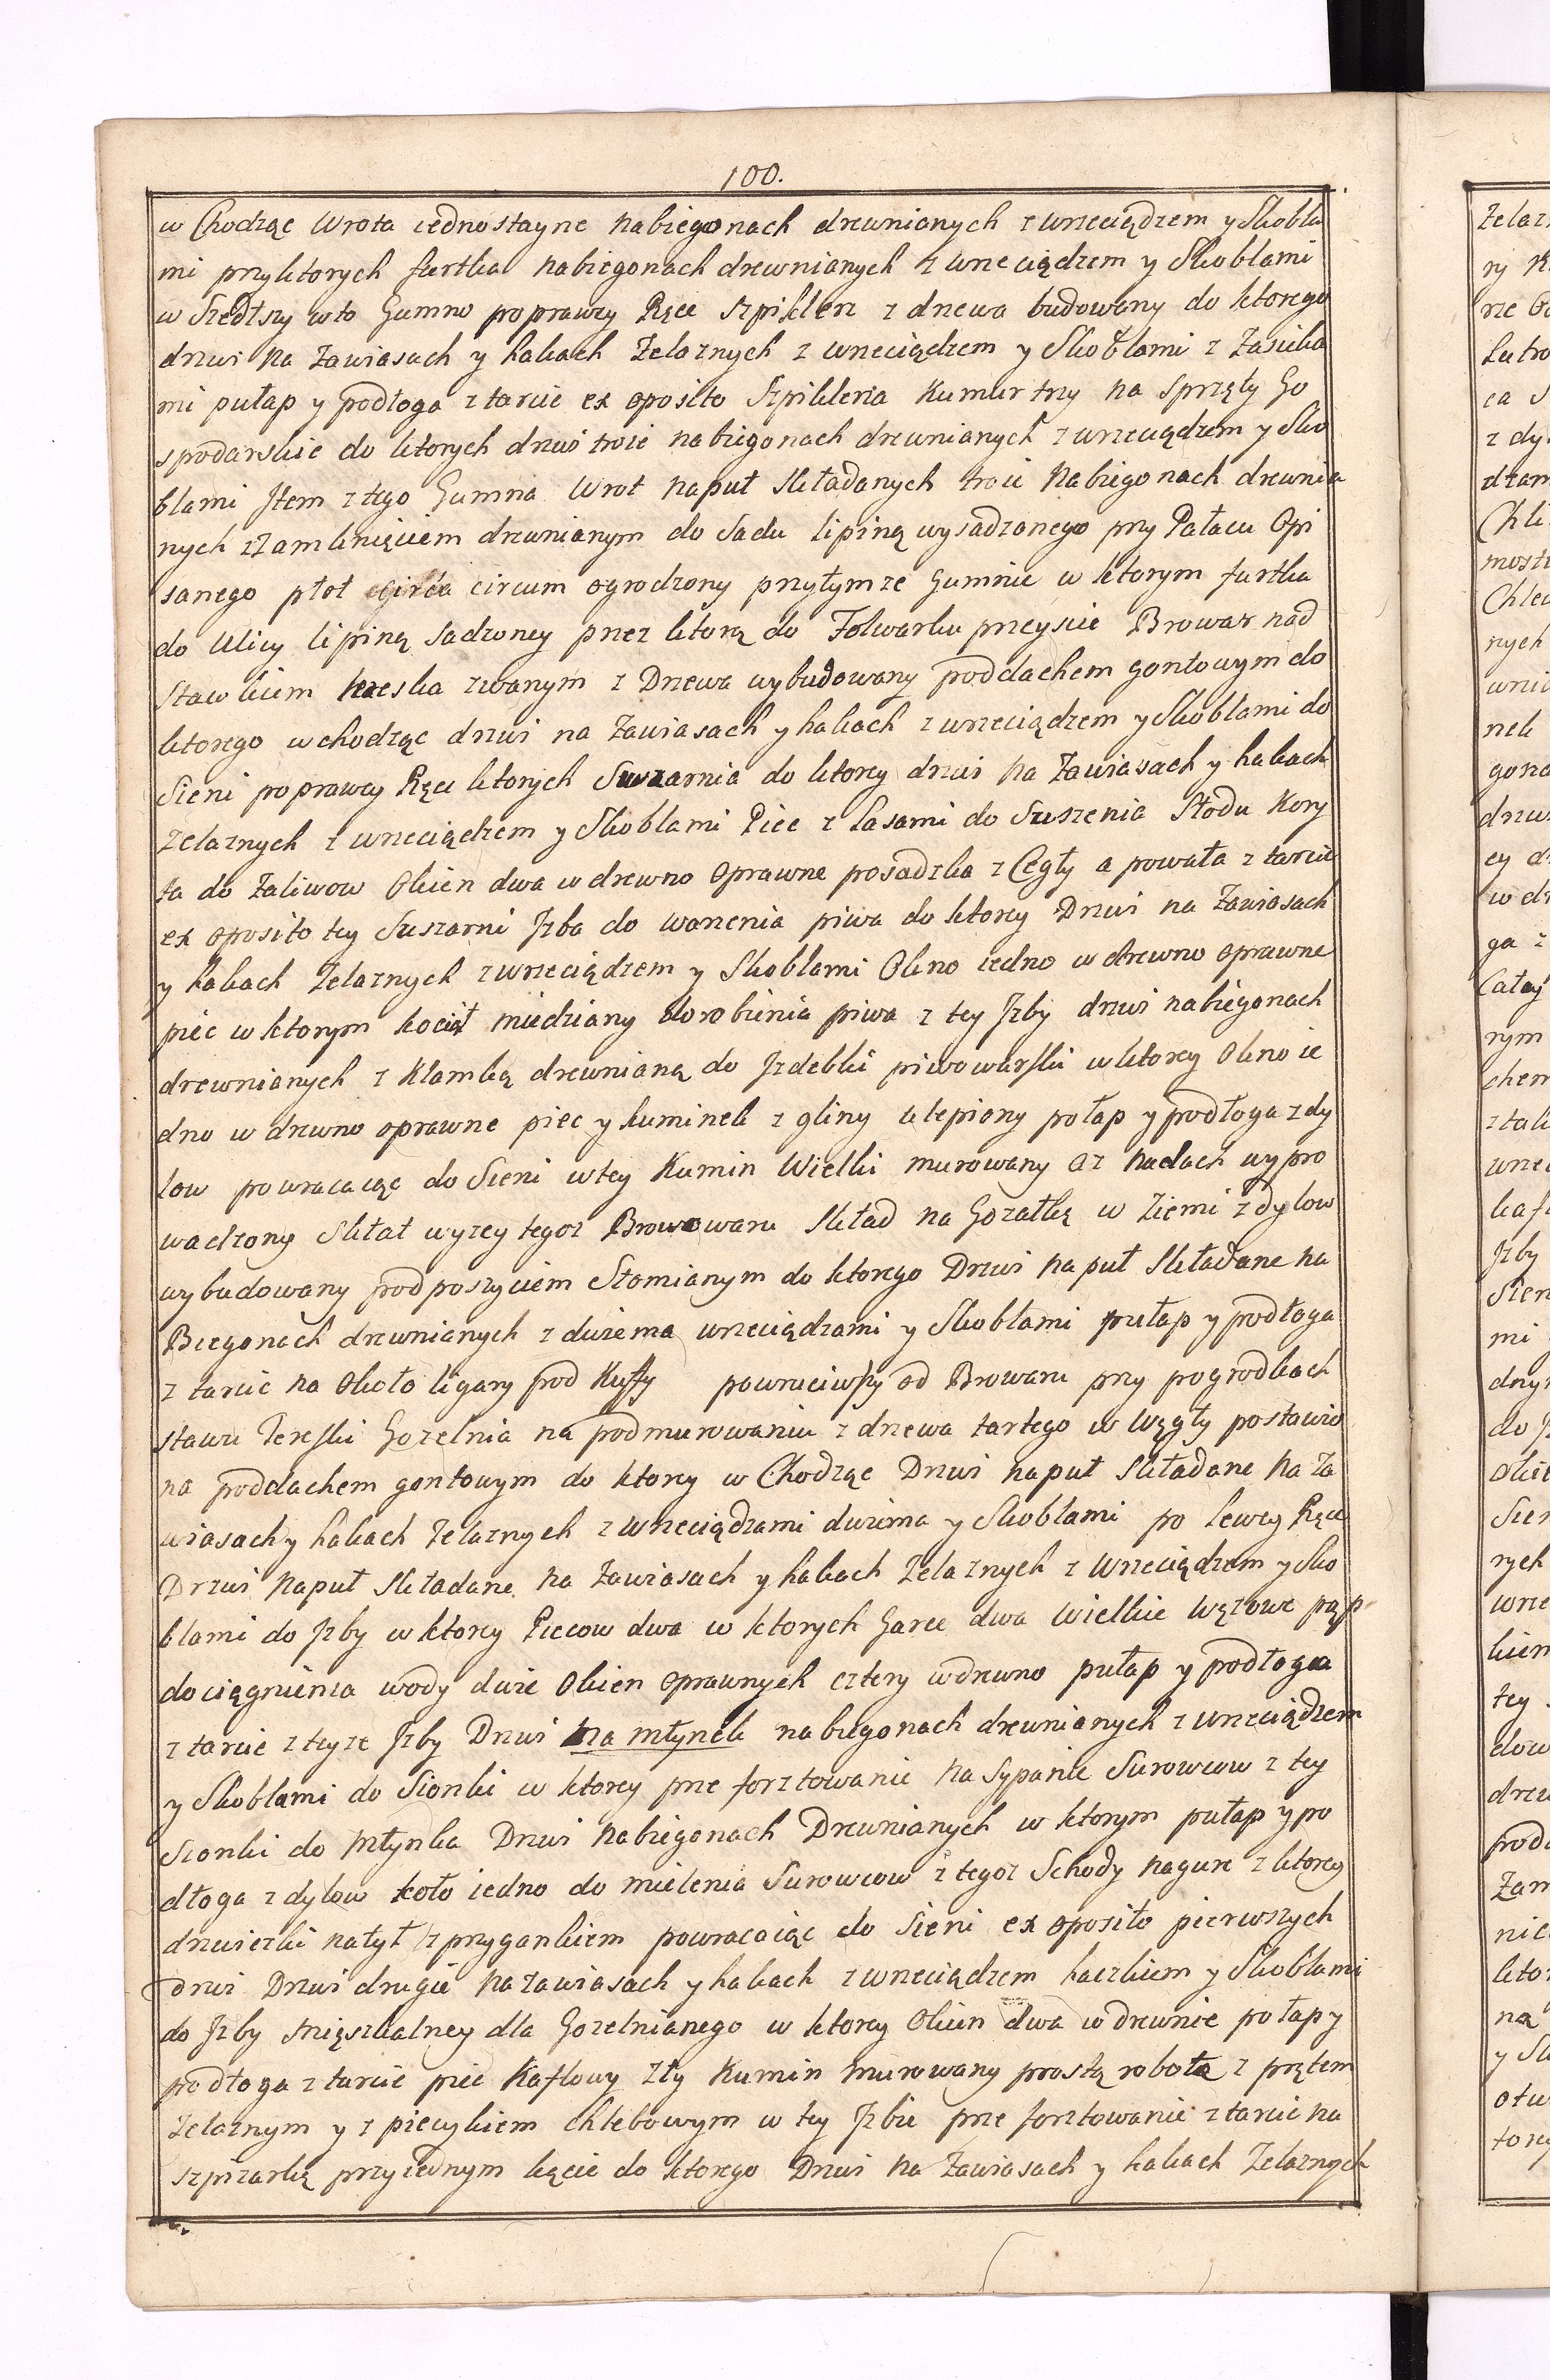 100.
w Chodząc Wrota iednostayne nabiegonach drewnianych z wrzeciądzem y Skobla
mi przyktorych furtka nabiegonach drewnianych z wrzeciądzem y Skoblami
w Szedłszy wto Gumno poprawey Ręce Szpiklerz z drzewa budowany do ktorego
drzwi na Zawiasach y hakach Zelaznych z wrzeciądzem y Skoblami z Zasieka
mi pułap y podłoga z tarcic ex oposito Szpiklerza Kumur trzy na Sprzęty Go
spodarskie do ktorych drzwi troie nabiegonach drewnianych z wrzeciądzem y Sko
blami Jtem z tego Gumna Wrot napuł Składanych troie Nabiegonach drewnia
nych z Zamknięciem drewnianym do Sadu lipiną wysadzonego przy Pałacu Opi
sanego płot circum ogrodzony przytymze Gumnie w ktorym furtka
do Ulicy lipiną Sadzoney przez ktorą do Folwarku przeyscie Browar nad
Stawkiem zwanym z Drzewa wybudowany poddachem gontowym do
ktorego wchodząc drzwi na Zawiasach y hakach z wrzeciądzem y Skoblami do
Sieni poprawey Ręce ktorych Suszarnia do ktorey drzwi na Zawiasach y hakach
Zelaznych z wrzeciądzem y Skoblami Piec z Lasami do Suszenia Słodu Kory
ta do Zaliwow Okien dwa w drewno Oprawne posadzka z Cegły a powała z tarcic
ex oposito tey Suszarni Jzba do warzenia piwa do ktorey Drzwi na Zawiasach
y hakach Zelaznych z wrzeciądzem y Skoblami Okno iedno w drewno oprawne
piec w ktorym kocioł miedziany dorobienia piwa z tey Jzby drzwi nabiegonach
drewnianych z Klamką drewnianą do Jzdebki piwowarski w ktorey Okno ie
dno w drewno oprawne piec y kuminek z gliny ulepiony połap y podłoga z dy
low powracaiąc do Sieni wtey Kumin Wielki murowany az nadach wypro
wadzony Skłat wyzey tegoz Browaru Skład na Gorzałkę w Ziemi z dylow
wybudowany podposzyciem Słomianym do ktorego Drzwi na puł Składane na
Biegonach drewnianych z dwiema wrzeciądzami y Skoblami pułap y podłoga
z tarcic na około ligary pod Kuffy powruciwszy od Browaru przy pogrodkach
stawu Tereski Gozelnia na podmurowaniu z drzewa tartego w Węgły postawio
na poddachem gontowym do ktorey w Chodząc Drzwi napuł Składane Na Za
wiasach y hakach Zelaznych z wrzeciądzami dwiema y Skoblami po lewey Ręce
Drzwi napuł Składane na Zawiasach y hakach Zelaznych z Wrzeciądzem y Sko
blami do Jzby w ktorey Piecow dwa w ktorych Garce dwa Wielkie Węzowe pąp
do ciągnienia wody dwie Okien oprawnych cztery wdrewno pułap y podłoga
z tarcic z teyze Jzby Drzwi na młynek nabiegonach drewnianych z wrzeciądzem
y Skoblami do Sionki w ktorey prze forztowanie na Sypanie Surowcow z tey
Sionki do Młynka Drzwi nabiegonach Drewnianych w ktorym pułap y po
dłoga z dylow koło iedno do mielenia Surowcow z tegoz Schody nagure z ktorey
drzwiczki natył z przygankiem powracaiąc do Sieni ex oposito pierwszych
drzwi Drzwi drugie na zawiasach y hakach z wrzeciądzem haczkiem y Skoblami
do Jzby mięszkalney dla Gozelnianego w ktorey Okien dwa w drewnie połap y
podłoga z tarcic piec Kaflowy Zły Kumin murowany prostą robotą z prętem
zelaznym y z piecykiem chlebowym w tey Jzbie prze forztowanie z tarcic na
szpizarkę przy iednym kącie do ktorego Drzwi na Zawiasach y hakach Zelaznych